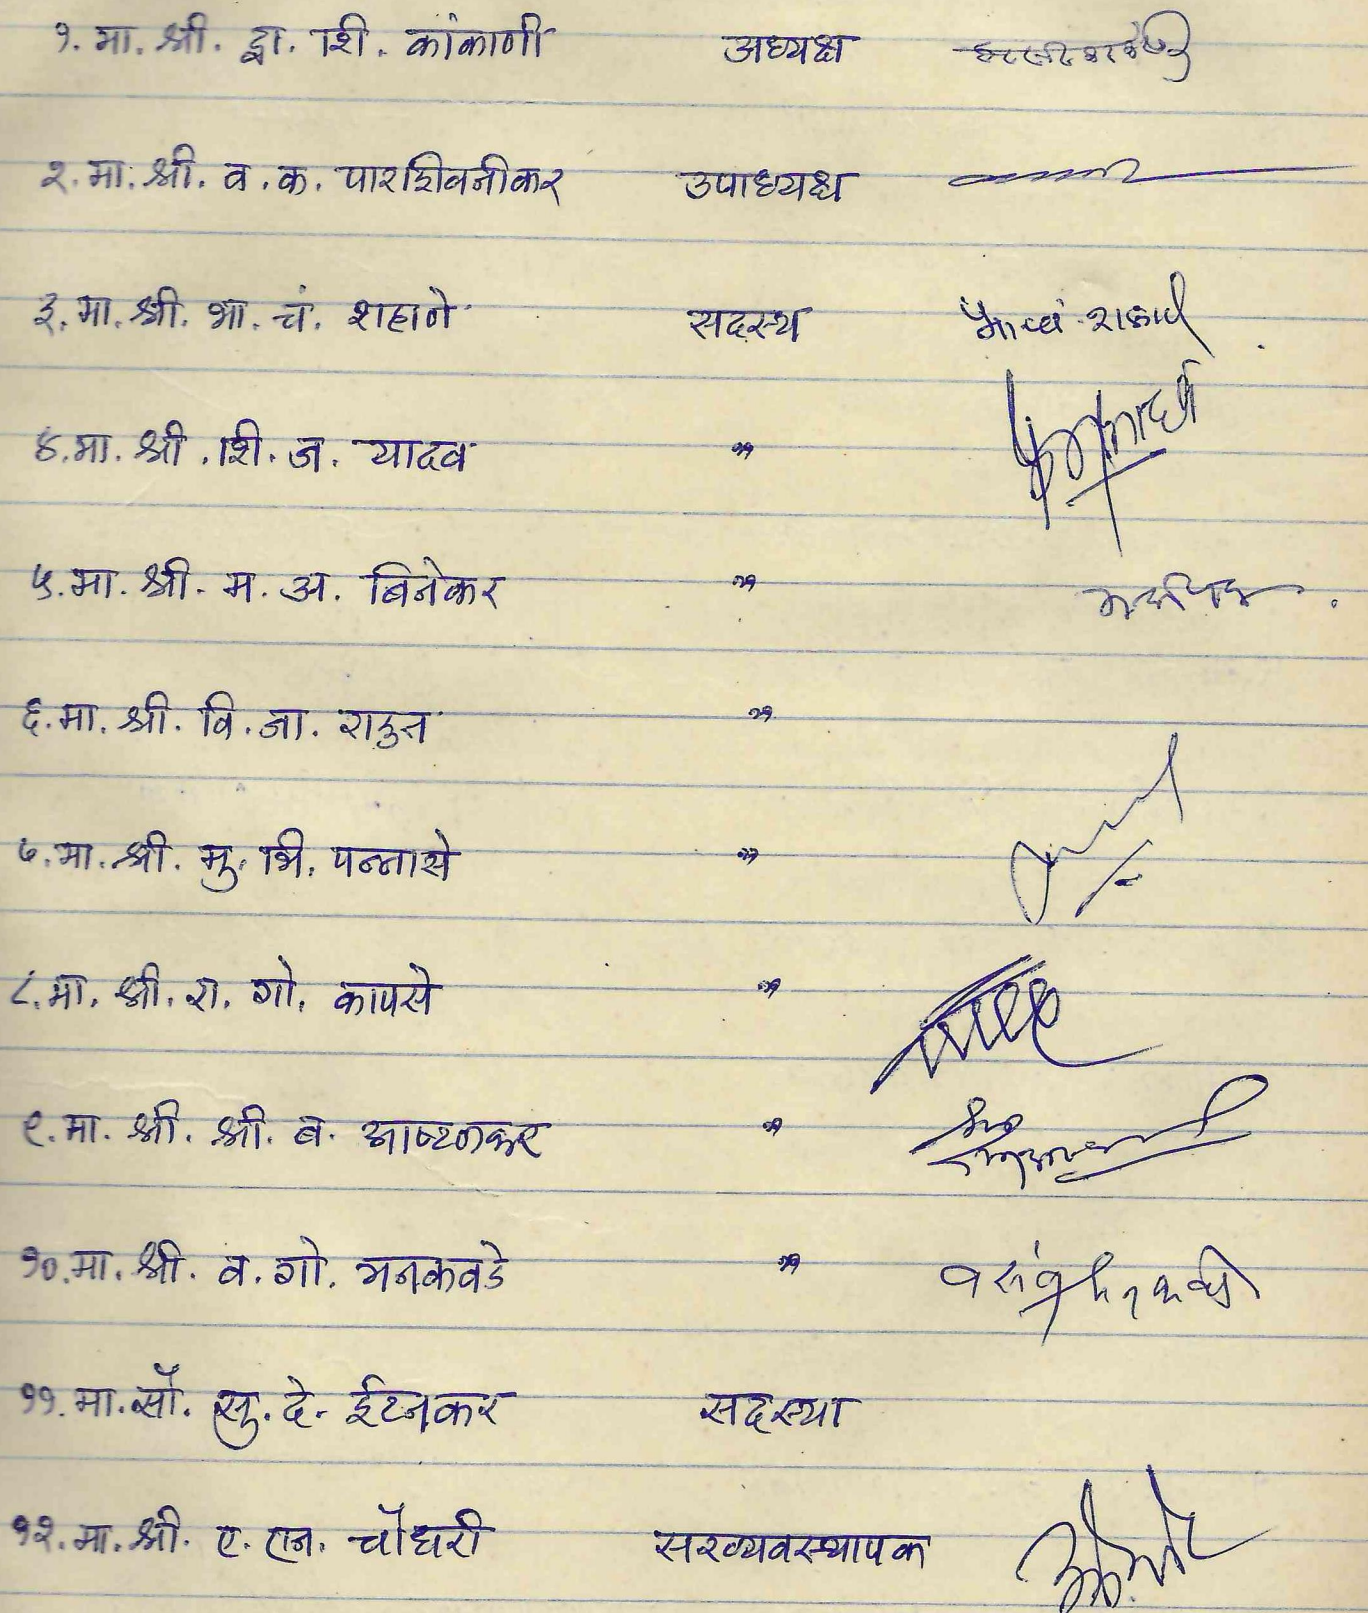 १. मा. श्री. द्वा. शि. कांकाणी अध्यक्ष
२. मा. श्री. व. क. पारशिवनीकर उपाध्यक्ष
३. मा. श्री. भा. चं. शहाणे सदस्य
४. मा. श्री. शि. ज. यादव "
५. मा. श्री. म. अ. बिनेकर "
६. मा. श्री. वि. जा. राऊत "
७. मा. श्री. मु. भि. पन्नासे "
८. मा. श्री. रा. गो. कापसे "
९. मा. श्री. श्री. ब. आष्टनकर "
१०. मा. श्री. व. गो. मनकवडे "
११. मा. सौ. सु. दे. ईटनकर सदस्या
१२. मा. श्री. ए. एन. चौधरी सरव्यवस्थापक